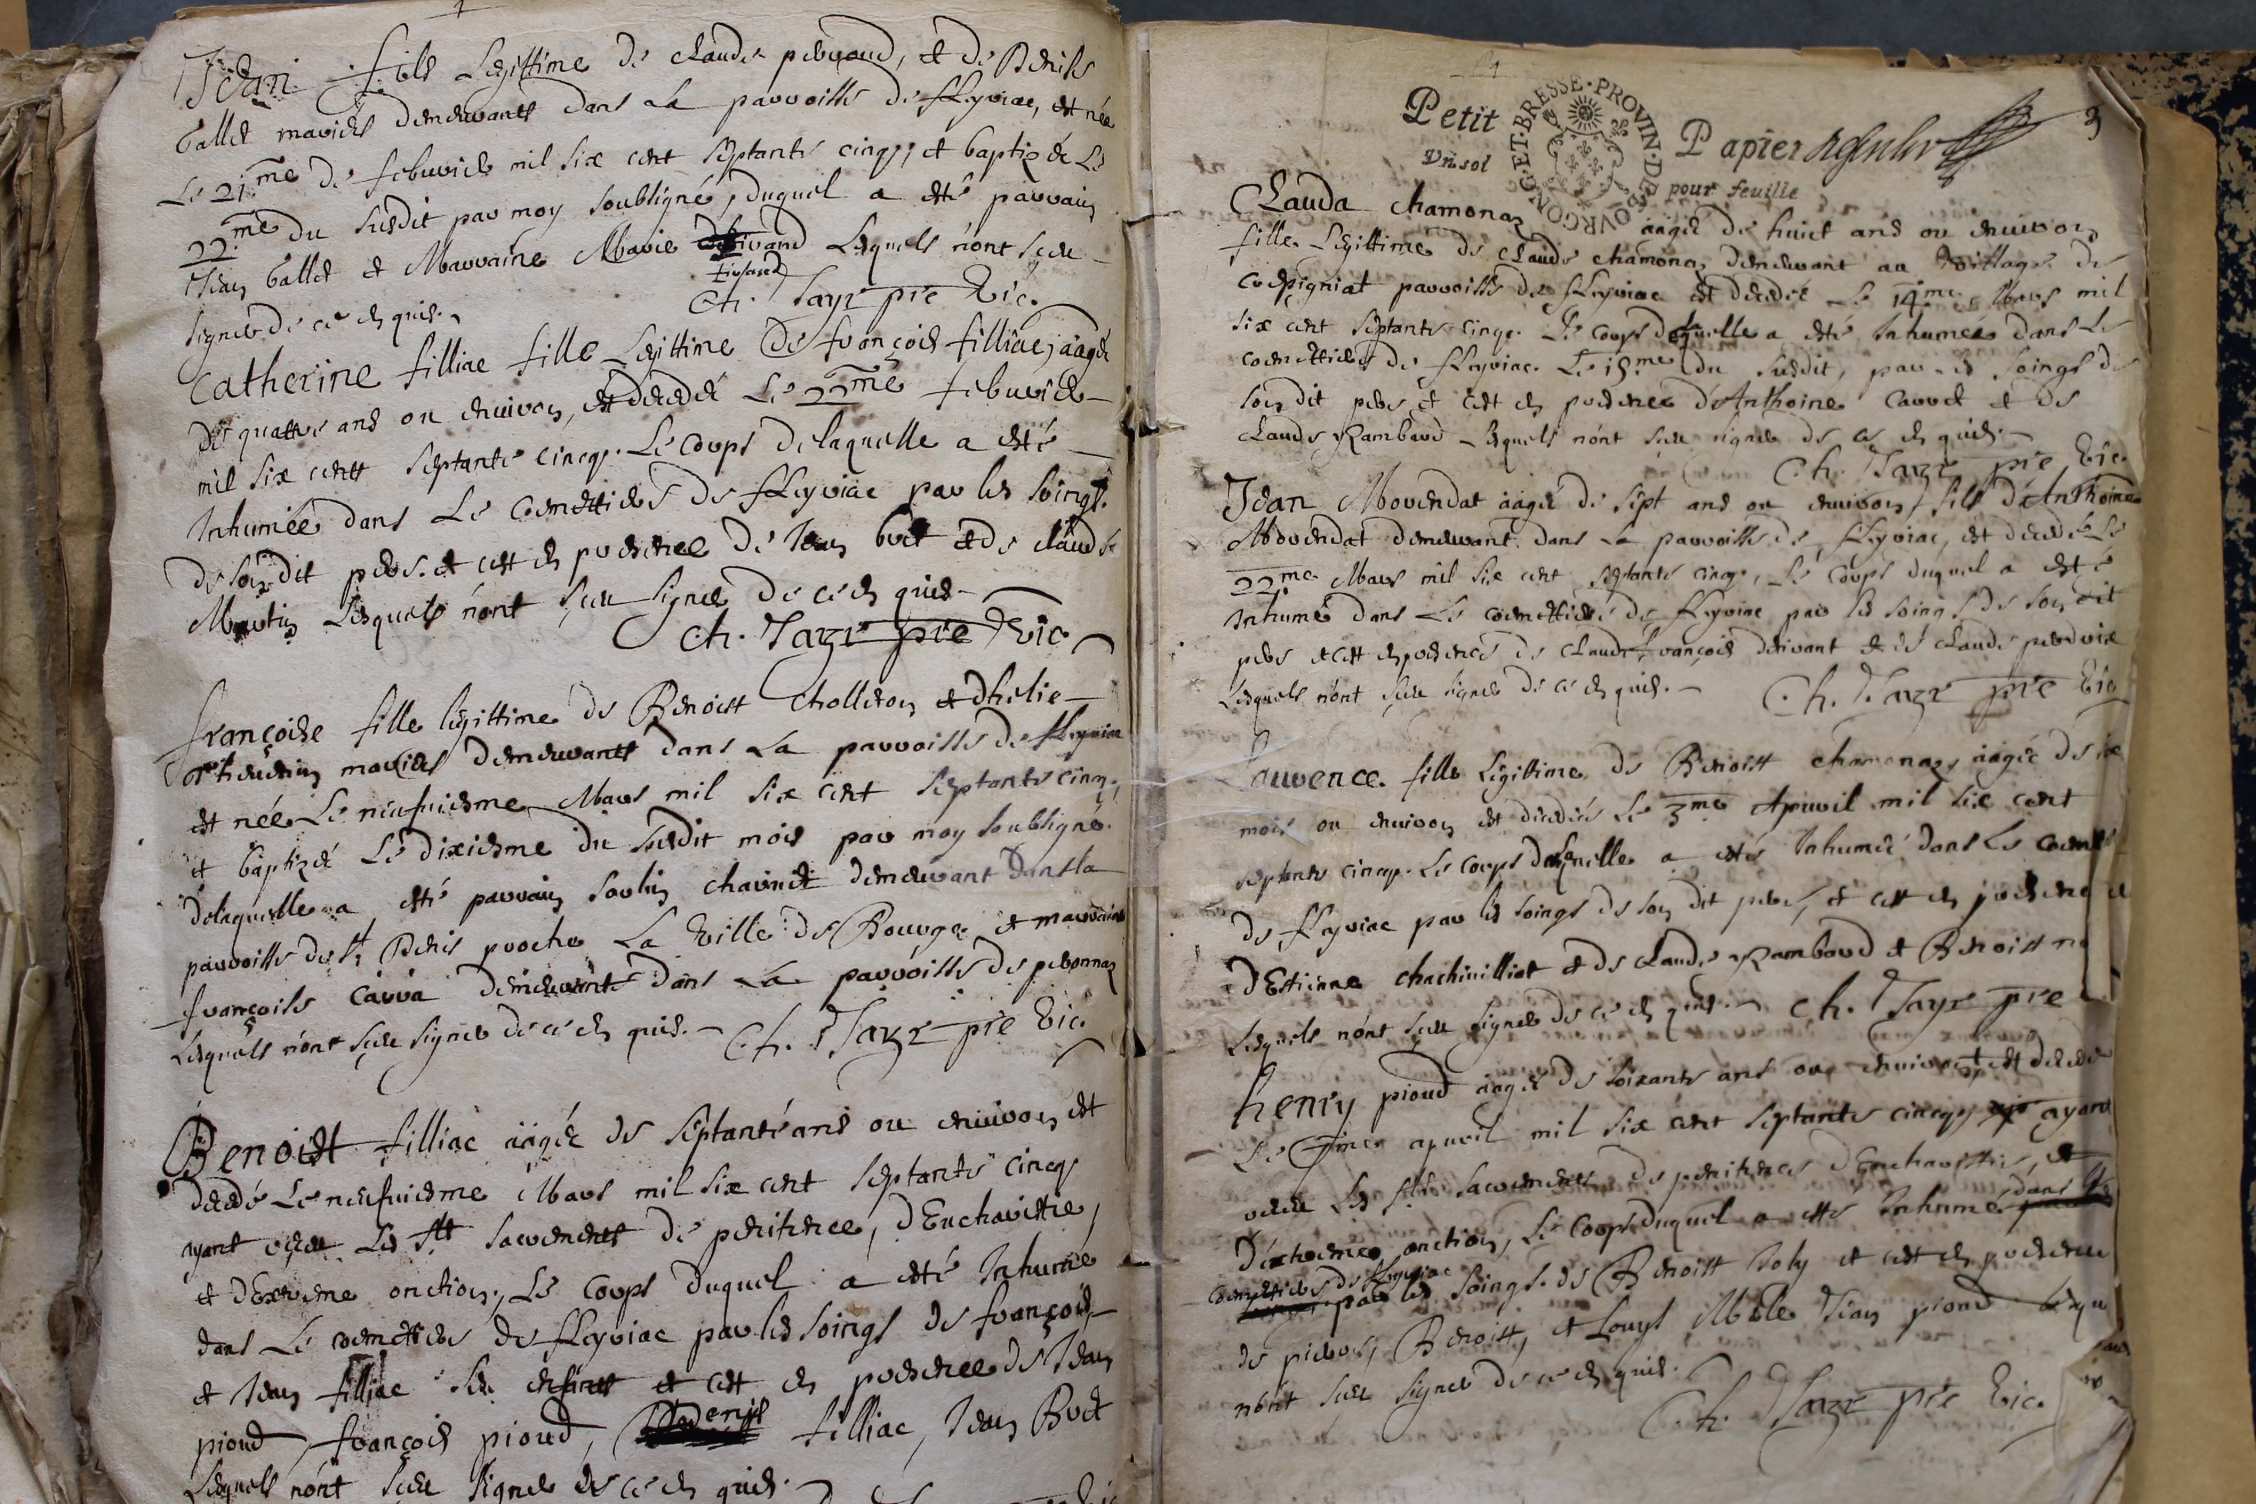 Jean fils Legittime de Claude perraud, et de Denise
ballet mariés demeurants dans La parroisse de fleyriac, est née
Le 21me de februier mil six cent septante cinq, et baptizé Le
22me du susdit par moy soubsigné, duquel a esté parrain
Jean ballet et Marraine Marie Lesquels n'ont sceu
signer de ce enquis.
Ch. Tayr pre Vic.
Catherine filliac fille Legittime de françois filliac, aagée
de quattre ans ou enuiron, est decedée Le 22me februier
mil six cent septante cincq. Le corps delaquelle a esté
Inhumée dans Le coemettiere de fleyriac par les soings
de son dit pere. et c'est en presence de Jean buet et de claude
Martin Lesquels n'ont sceu signer de ce enquis
Ch. Tayr pre Vic.
françoise fille legittime de Benoist Cholleton et d'helie
mariés demeurants dans La parroisse de fleyriac
est née Le neufuiesme Mars mil six cent septante cinq,
et baptizée Le dixiesme du susdit mois par moy soubsigné.
delaquelle a esté parrain demeurant dans la
parroisse de St Denis proche La Ville de Bourg et marraine
françoise carra demeurante dans La parroisse de peronnaz
Lesquels n'ont sceu signer de ce enquis. Ch. Tayr pre Vic.
Benoist filliac aagée de septante ans ou enuiron est
decedé Le neufuiesme Mars mil six cent septante cincq
ayant receu Les Sts sacrements de penitence, d'Eucharistie,
et d'Extreme onction, Le corps duquel a esté Inhumé
dans Le coemettiere de fleyriac par les soings de françois
et Jean filliac ses enfants et c'est en presence de Jean
pioud, françois pioud, Denis filliac, Jean Buet
Lesquels n'ont sceu signer de ce enquis.
Petit Papier
Vn sol pour feuille
BOVRGONG·ET·BRESSE·PROVIN·D
3
Clauda chamonaz aagée de huict ans ou enuiron
fille Legittime de claude chamonaz demeurant au Village de
parroisse de fleyriac est decedée Le 14me Mars mil
six cent septante cinq. Le corps delaquelle a esté Inhumée dans Le
coemettiere de fleyriac Le 15me du susdit, par les soings de
son dit pere, et c'est en presence d'Anthoine carret et de
claude Rambaud Lesquels n'ont sceu signer de ce enquis.
Ch. Tayr pre Vic.
Jean Morendat aagé de sept ans ou enuiron fils d'Anthoine
Morendat demeurant dans La parroisse de fleyriac, est decedé Le
22me Mars mil six cent septante cinq, Le corps duquel a esté
Inhumé dans Le coemettiere de fleyriac par les soings de son dit
pere et c'est en presence de claude françois et de claude
Lesquels n'ont sceu signer de ce enquis. Ch. Tayr pre Vic
Laurence fille Legittime de Benoist chamonaz, aagée de six
mois ou enuiron est decedée Le 3me Apuril mil six cent
septante cincq. Le corps delaquelle a esté Inhumée dans Le
de fleyriac par les soings de son dit pere, et c'est en presence
d'Estienne et de claude Rambaud et Benoist
Lesquels n'ont sceu signer de ce enquis. Ch. Tayr pre
henry pioud aagé de soixante ans ou enuiron est decedé
Le apuril mil six cent septante cincq, ayant
receu Les Sts sacrements de penitence d'Eucharistie, et
d'extreme onction, Le corps duquel a esté Inhumé dans le
coemettiere de fleyriac par les soings de Benoist Joly et c'est en presence
de pierre, Benoist, et Louys Jean pioud
n'ont sceu signer de ce enquis.
Ch. Tayr pre Vic.